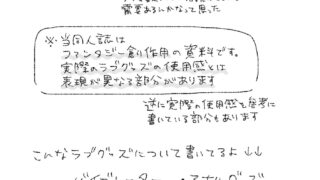 需要あるんかなって思った
※当同人誌は
ファンタジー創作用の資料です。
実際のラブグッズの使用感とは
表現が異なる部分があります
逆に実際の使用感を参考に
書いている部分もあります
こんなラブグッズについて書いてるよ↓↓